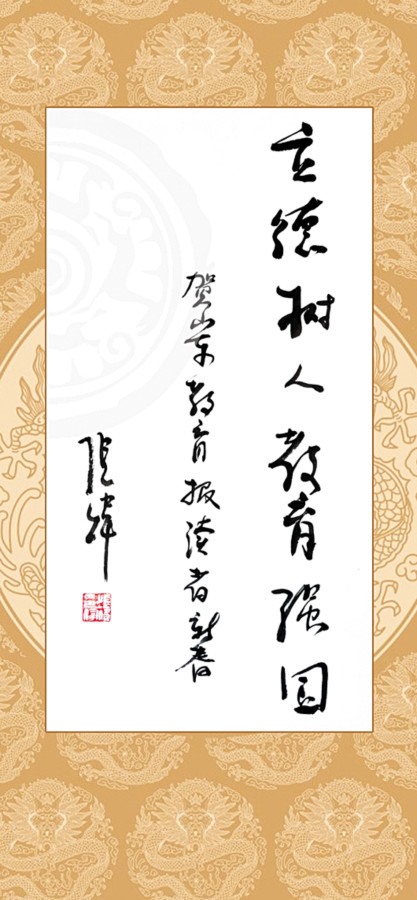 立德树人教育强国
贺山东教育报读者新春
张炜